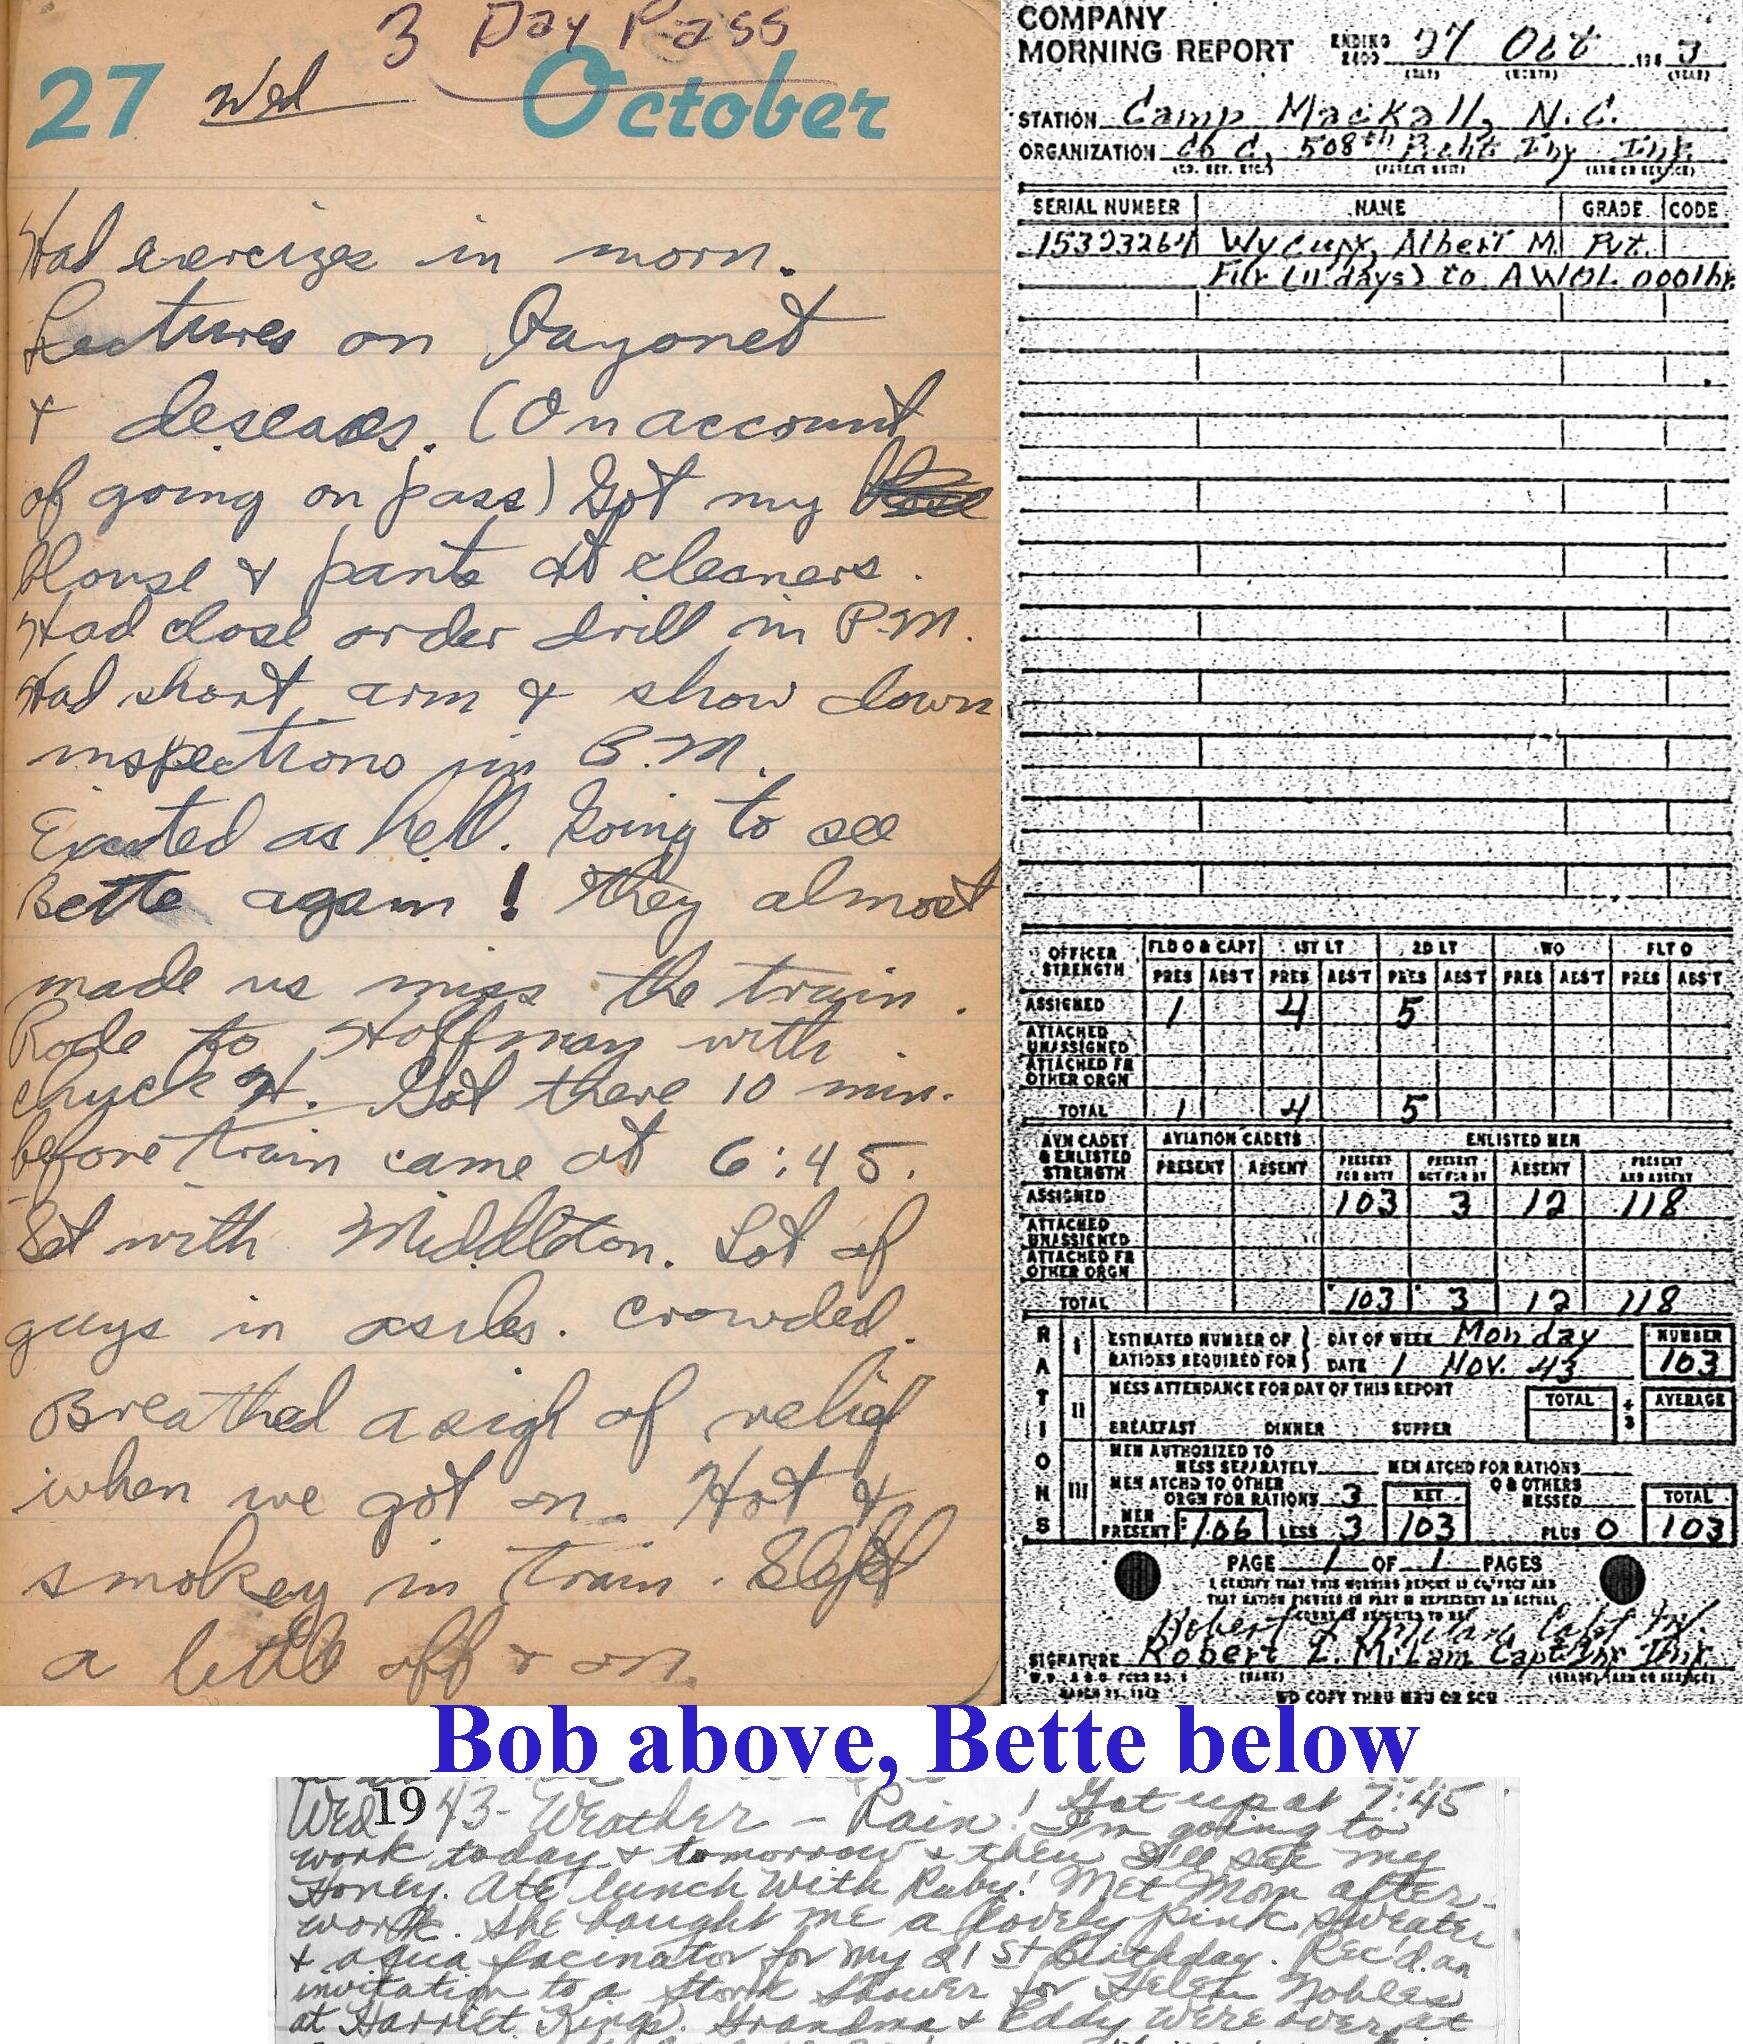 3 Day Pass
27 Wed October
Had exercizes in morn.
Lectures on Bayonet
& deseases. (On account
of going on pass) Got my
blouse & pants at cleaners.
Had close order drill in P.M.
Had short arm & show down
inspections in P.M.
Excited as hell. Going to see
Bette again! They almost
made us miss the train.
Rode to Hoffman with
Chuck H. Got there 10 min.
before train came at 6:45.
Set with Middleton. Lot of
guys in asiles. Crowded.
Breathed a sigh of relief
when we got on. Hot &
smokey in train. Slept
a little off & on.
COMPANY
MORNING REPORT ENDING 2400 27 Oct 194 3
(DAY) (MONTH) (YEAR)
STATION Camp Mackall, N.C.
ORGANIZATION Co C, 508th Pcht Inf Inf.
(CO. DET. ETC.) (PARENT UNIT) (ARM OR SERVICE)
SERIAL NUMBER NAME GRADE CODE
15323264 Albert M. Pvt.
(11 days) to AWOL 0001hr
OFFICER STRENGTH FLD O & CAPT 1ST LT 2D LT WO FLT O
PRES ABS'T PRES ABS'T PRES ABS'T PRES ABS'T PRES ABS'T
ASSIGNED 1 4 5
ATTACHED UNASSIGNED
ATTACHED FR OTHER ORGN
TOTAL 1 4 5
AVN CADET & ENLISTED STRENGTH AVIATION CADETS ENLISTED MEN
PRESENT ABSENT PRESENT FOR DUTY PRESENT NOT FOR DY ABSENT PRESENT AND ABSENT
ASSIGNED 103 3 12 118
ATTACHED UNASSIGNED
ATTACHED FR OTHER ORGN
TOTAL 103 3 12 118
RATIONS
I ESTIMATED NUMBER OF RATIONS REQUIRED FOR DAY OF WEEK Monday NUMBER
DATE 1 Nov. 43 103
II MESS ATTENDANCE FOR DAY OF THIS REPORT TOTAL ÷ 3 AVERAGE
BREAKFAST DINNER SUPPER
III MEN AUTHORIZED TO MESS SEPARATELY MEN ATCHD FOR RATIONS
MEN ATCHD TO OTHER ORGN FOR RATIONS 3 NET & OTHERS MESSED TOTAL
MEN PRESENT 106 LESS 3 103 PLUS 0 103
PAGE 1 OF 1 PAGES
I CERTIFY THAT THIS MORNING REPORT IS CORRECT AND
THAT RATION FIGURES IN PART III REPRESENT AN ACTUAL
Robert L Milam Capt Inf.
SIGNATURE Robert L. Milam Capt Inf
(NAME) (GRADE) (ARM OR SERVICE)
W.D., A.G.O. FORM NO. 1
MARCH 27, 1943
WD COPY THRU MRU OR SCU
Bob above, Bette below
Wed 1943 - Weather - Rain! Got up at 7:45
I'm going to
work today & tomorrow & then I'll see my
Honey. Ate lunch with Ruby! Met Mom after
work. She bought me a lovely pink sweater
& aqua facinator for my 21st Birthday. Rec'd. an
invitation to a Stork Shower for Helen Nobles
at Harriet Kings. Grandma & Eddy were over at